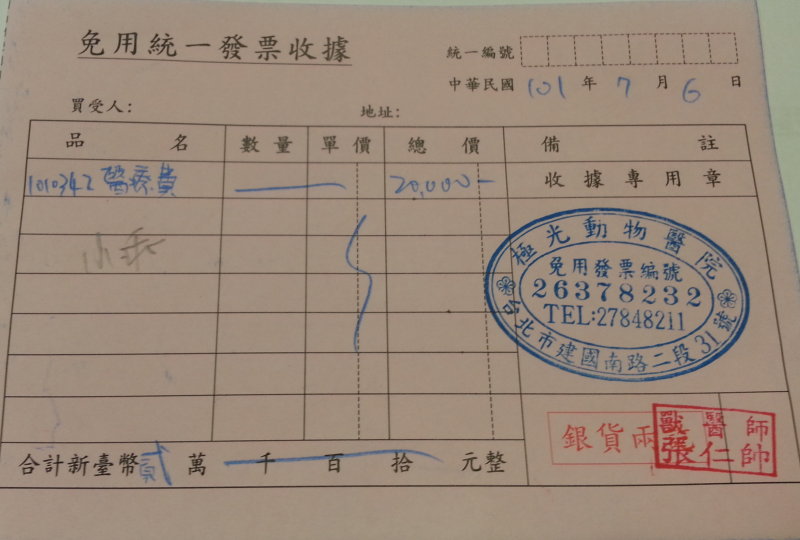 免用統一發票收據
統一編號
中華民國 101 年 7 月 6 日
買受人： 地址：
品名 數量 單價 總價 備註
1010342 醫療費 20,000- 收據專用章
小乖
極光動物醫院
免用發票編號
26378232
TEL:27848211
台北市建國南路二段31號
銀貨兩
獸醫師
張仁帥
合計新臺幣貳萬千百拾元整